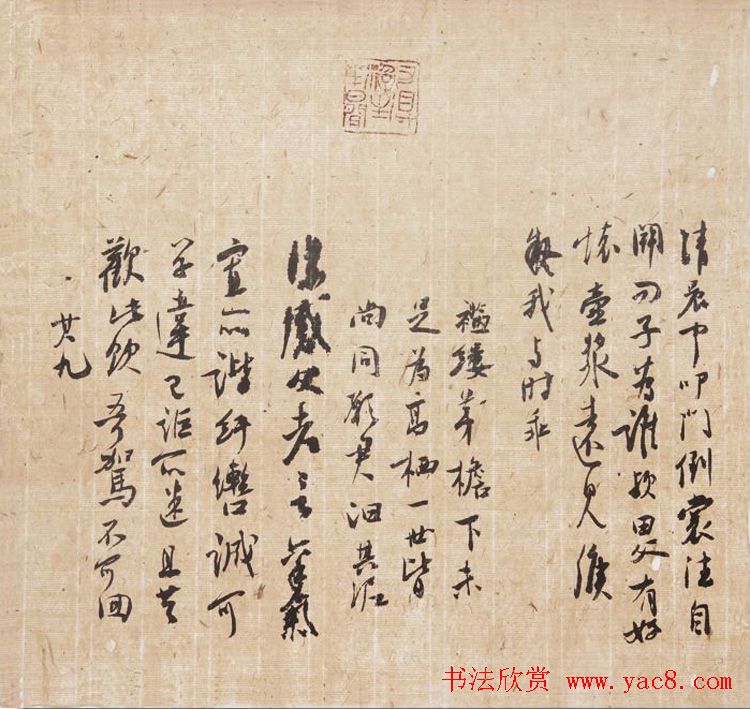 清晨聞叩門倒裳往自
開问子為誰欤田父有好
懷壺漿遠見候
疑我与时乖
襤縷茅檐下未
足為高栖一世皆
尚同願君汩其泥
深感父老言禀氣
寡所諧紆轡誠可
学違己詎非迷且共
歡此飲吾駕不可回
其九
书法欣赏 www.yac8.com